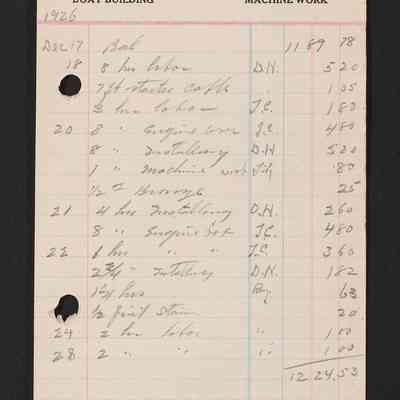 BOAT BUILDING MACHINE WORK
1926
Dec 17 Bal 1189 78
18 8 hrs labor D.H. 5 20
7 ft starter cable 1 05
3 hrs labor J.C. 1 80
20 8 " Engine J.C. 4 80
8 " Installing D.H. 5 20
1 " Machine work 80
1/2 # Bronze 25
21 4 hrs Installing D.H. 2 60
8 " Engine J.C. 4 80
22 6 hrs " " J.C. 3 60
2 3/4 " Installing D.H. 1 82
1 1/4 hrs 63
1/2 pint Stain 20
24 2 hrs labor " 1 00
28 2 " " " 1 00
1224.53